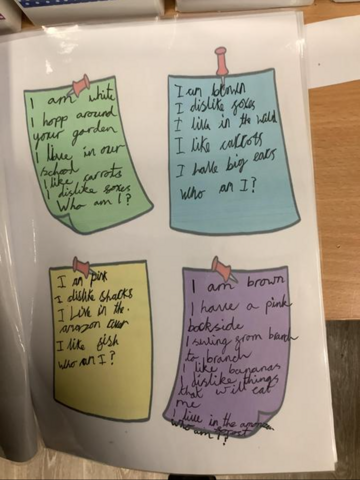 I am white
I hopp around
your garden
I live in our
school
I like carrots
I dislike foxes
Who am I?
I am brown
I dislike foxes
I live in the wild
I like carrots
I have big ears
who am I?
I am pink
I dislike sharks
I Live in the
amazon river
I like fish
who am I?
I am brown
I have a pink
backside
I swing from branch
to branch
I like bananas
I dislike things
that will eat
me
I live in the
who am I?